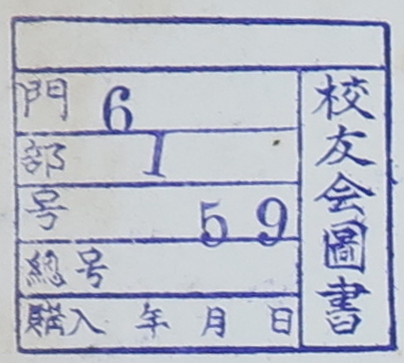 校友会圖書
門 6
部 1
号 59
總号
購入 年 月 日